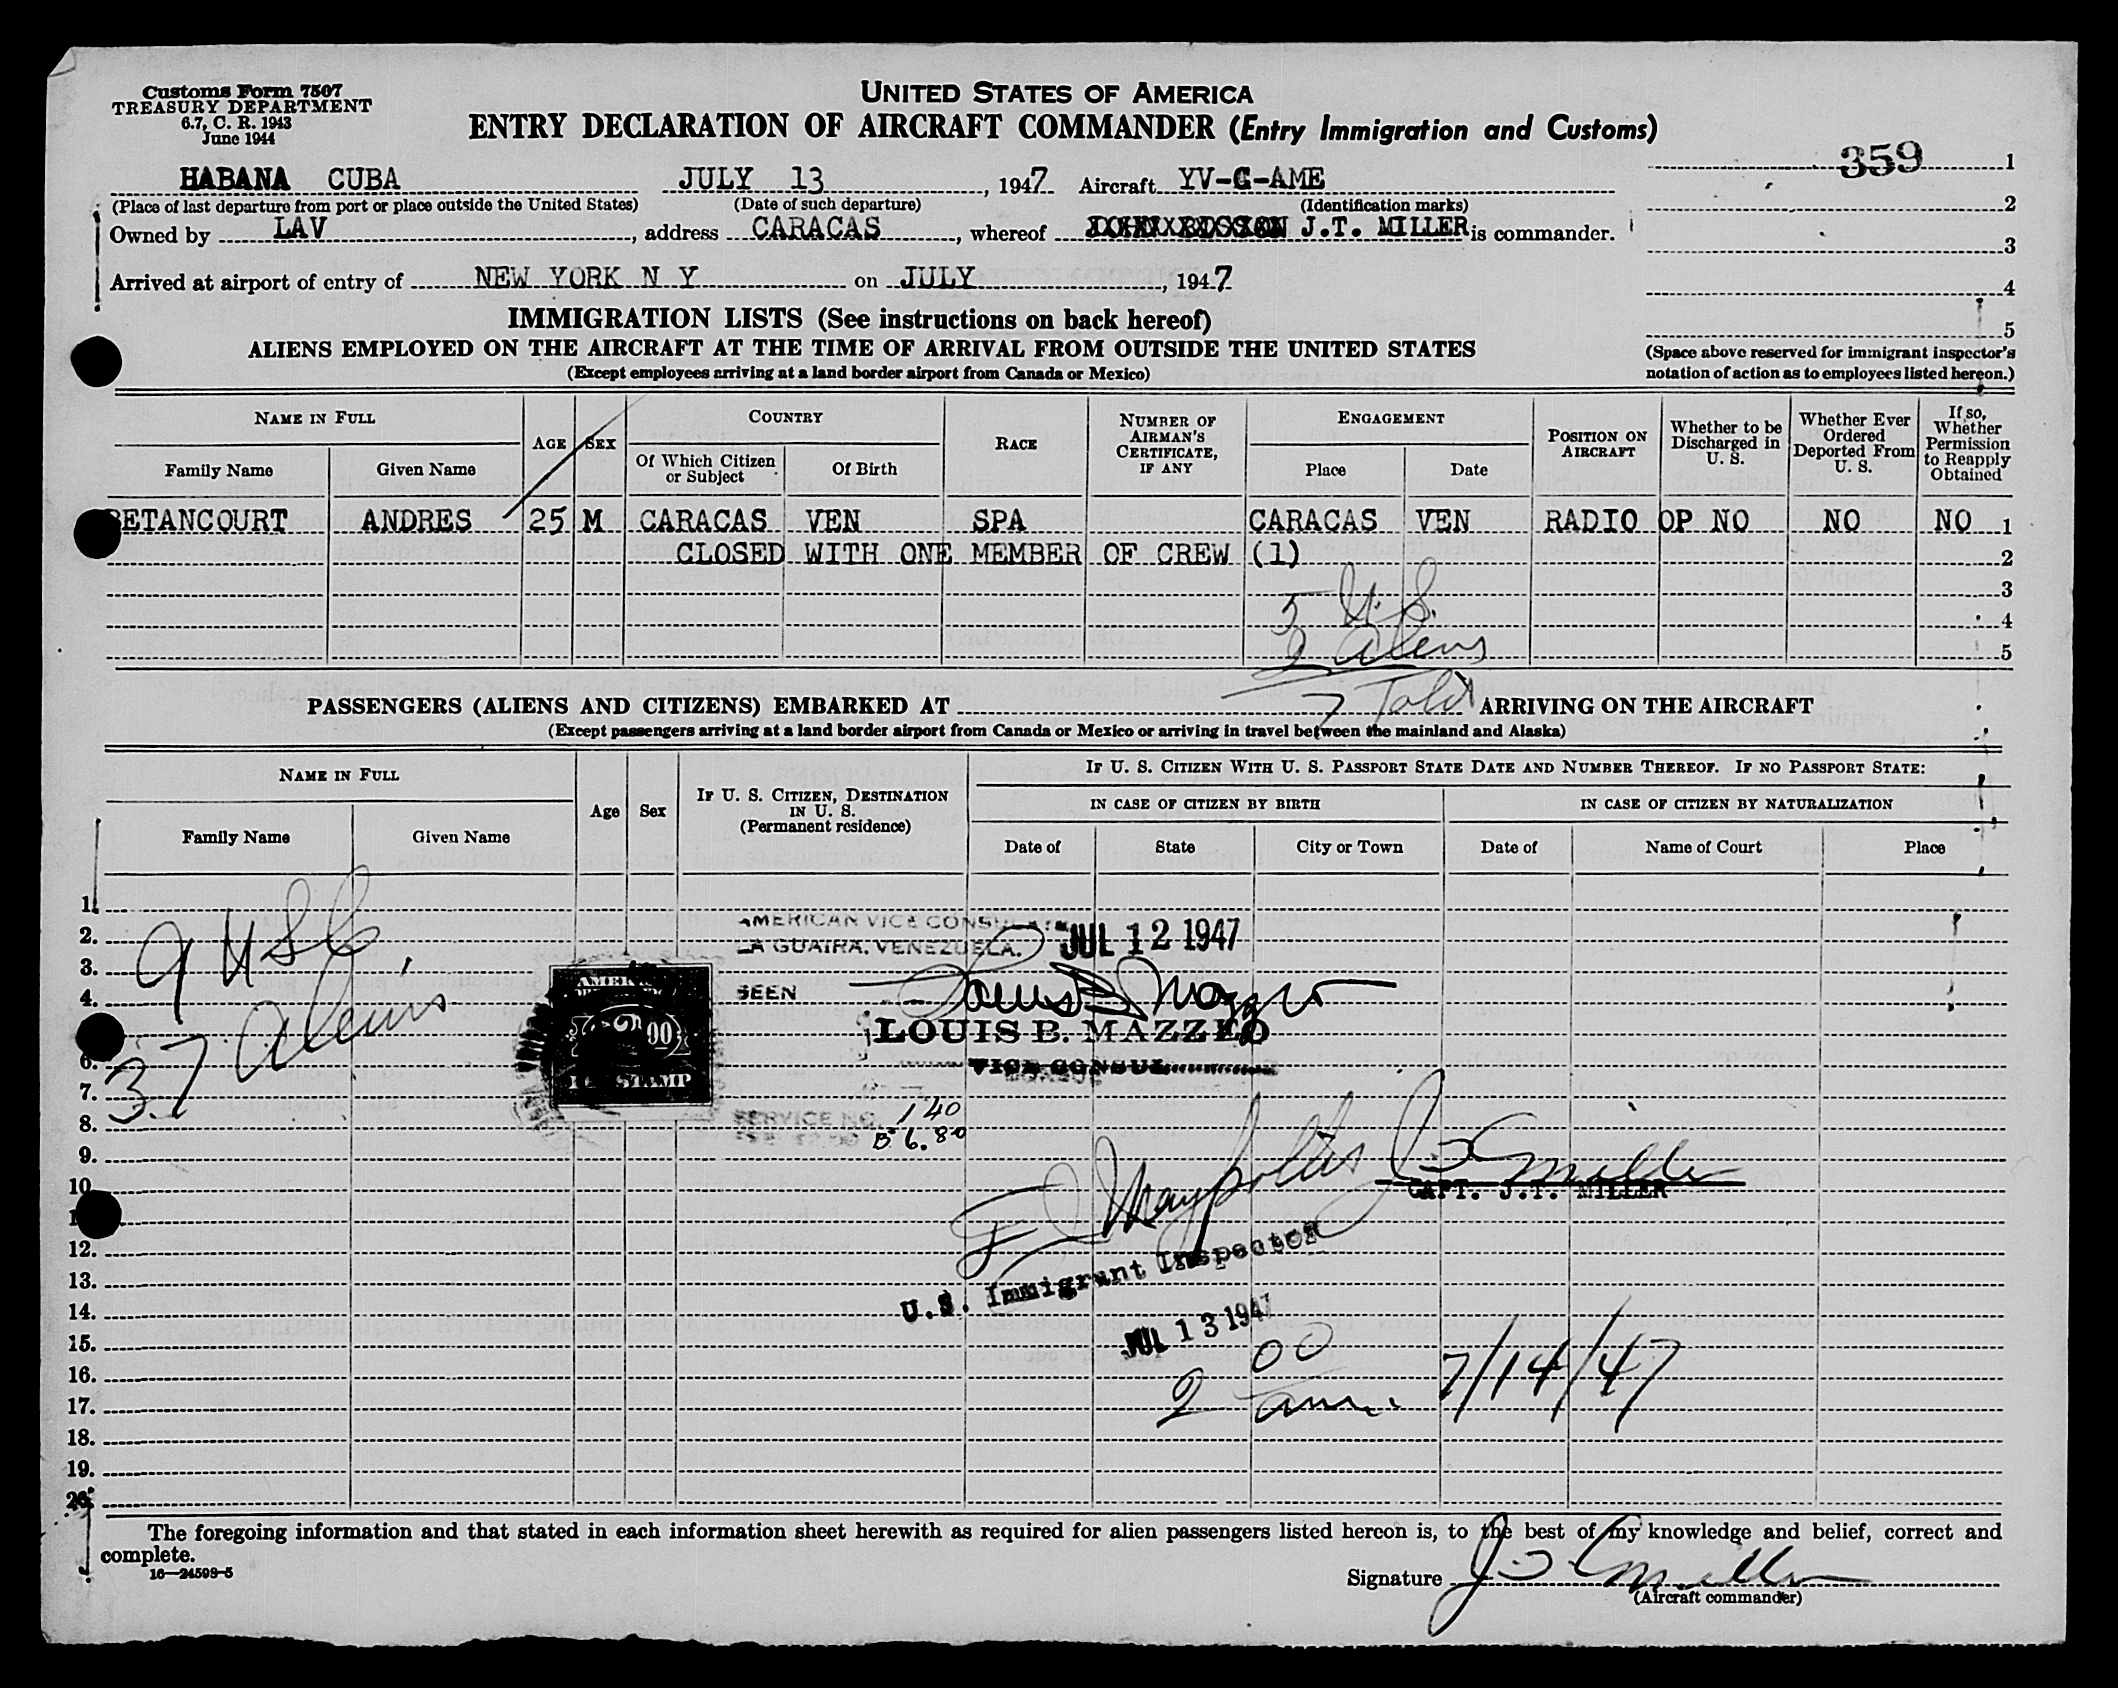 Customs Form 7507
TREASURY DEPARTMENT
6.7, C. R. 1943
June 1944
UNITED STATES OF AMERICA
ENTRY DECLARATION OF AIRCRAFT COMMANDER (Entry Immigration and Customs)
359 1
2
3
4
5
(Space above reserved for immigrant inspector's notation of action as to employees listed hereon.)
HABANA CUBA JULY 13, 1947 Aircraft YV-C-AME
(Place of last departure from port or place outside the United States) (Date of such departure) (Identification marks)
Owned by LAV, address CARACAS, whereof J.T. MILLER is commander.
Arrived at airport of entry of NEW YORK N Y on JULY, 1947
IMMIGRATION LISTS (See instructions on back hereof)
ALIENS EMPLOYED ON THE AIRCRAFT AT THE TIME OF ARRIVAL FROM OUTSIDE THE UNITED STATES
(Except employees arriving at a land border airport from Canada or Mexico)
NAME IN FULL AGE SEX COUNTRY RACE NUMBER OF AIRMAN'S CERTIFICATE, IF ANY ENGAGEMENT POSITION ON AIRCRAFT Whether to be Discharged in U. S. Whether Ever Ordered Deported From U. S. If so, Whether Permission to Reapply Obtained
Family Name Given Name Of Which Citizen or Subject Of Birth Place Date
BETANCOURT ANDRES 25 M CARACAS VEN SPA CARACAS VEN RADIO OP NO NO NO 1
CLOSED WITH ONE MEMBER OF CREW (1) 2
3
5 U.S. 4
2 aliens 5
7 Total
PASSENGERS (ALIENS AND CITIZENS) EMBARKED AT ARRIVING ON THE AIRCRAFT
(Except passengers arriving at a land border airport from Canada or Mexico or arriving in travel between the mainland and Alaska)
NAME IN FULL Age Sex IF U. S. CITIZEN, DESTINATION IN U. S. (Permanent residence) IF U. S. CITIZEN WITH U. S. PASSPORT STATE DATE AND NUMBER THEREOF. IF NO PASSPORT STATE:
IN CASE OF CITIZEN BY BIRTH IN CASE OF CITIZEN BY NATURALIZATION
Family Name Given Name Date of State City or Town Date of Name of Court Place
1.
2.
3.
4.
6.
7.
8.
9.
10
12.
13.
14.
15.
16.
17.
18.
19.
20.
9 USC
37 aliens
AMERICAN VICE CONSULATE
LA GUAIRA, VENEZUELA. JUL 12 1947
SEEN
AMERICAN
$2.00
FEE STAMP
Louis B Mazzeo
LOUIS B. MAZZEO
VICE CONSUL
SERVICE NO. 140
B 6.80
J T Miller
CAPT. J.T. MILLER
U.S. Immigrant Inspector
JUL 13 1947
2 00 7/14/47
The foregoing information and that stated in each information sheet herewith as required for alien passengers listed hereon is, to the best of my knowledge and belief, correct and
complete.
16—24598-5
Signature J T Miller
(Aircraft commander)